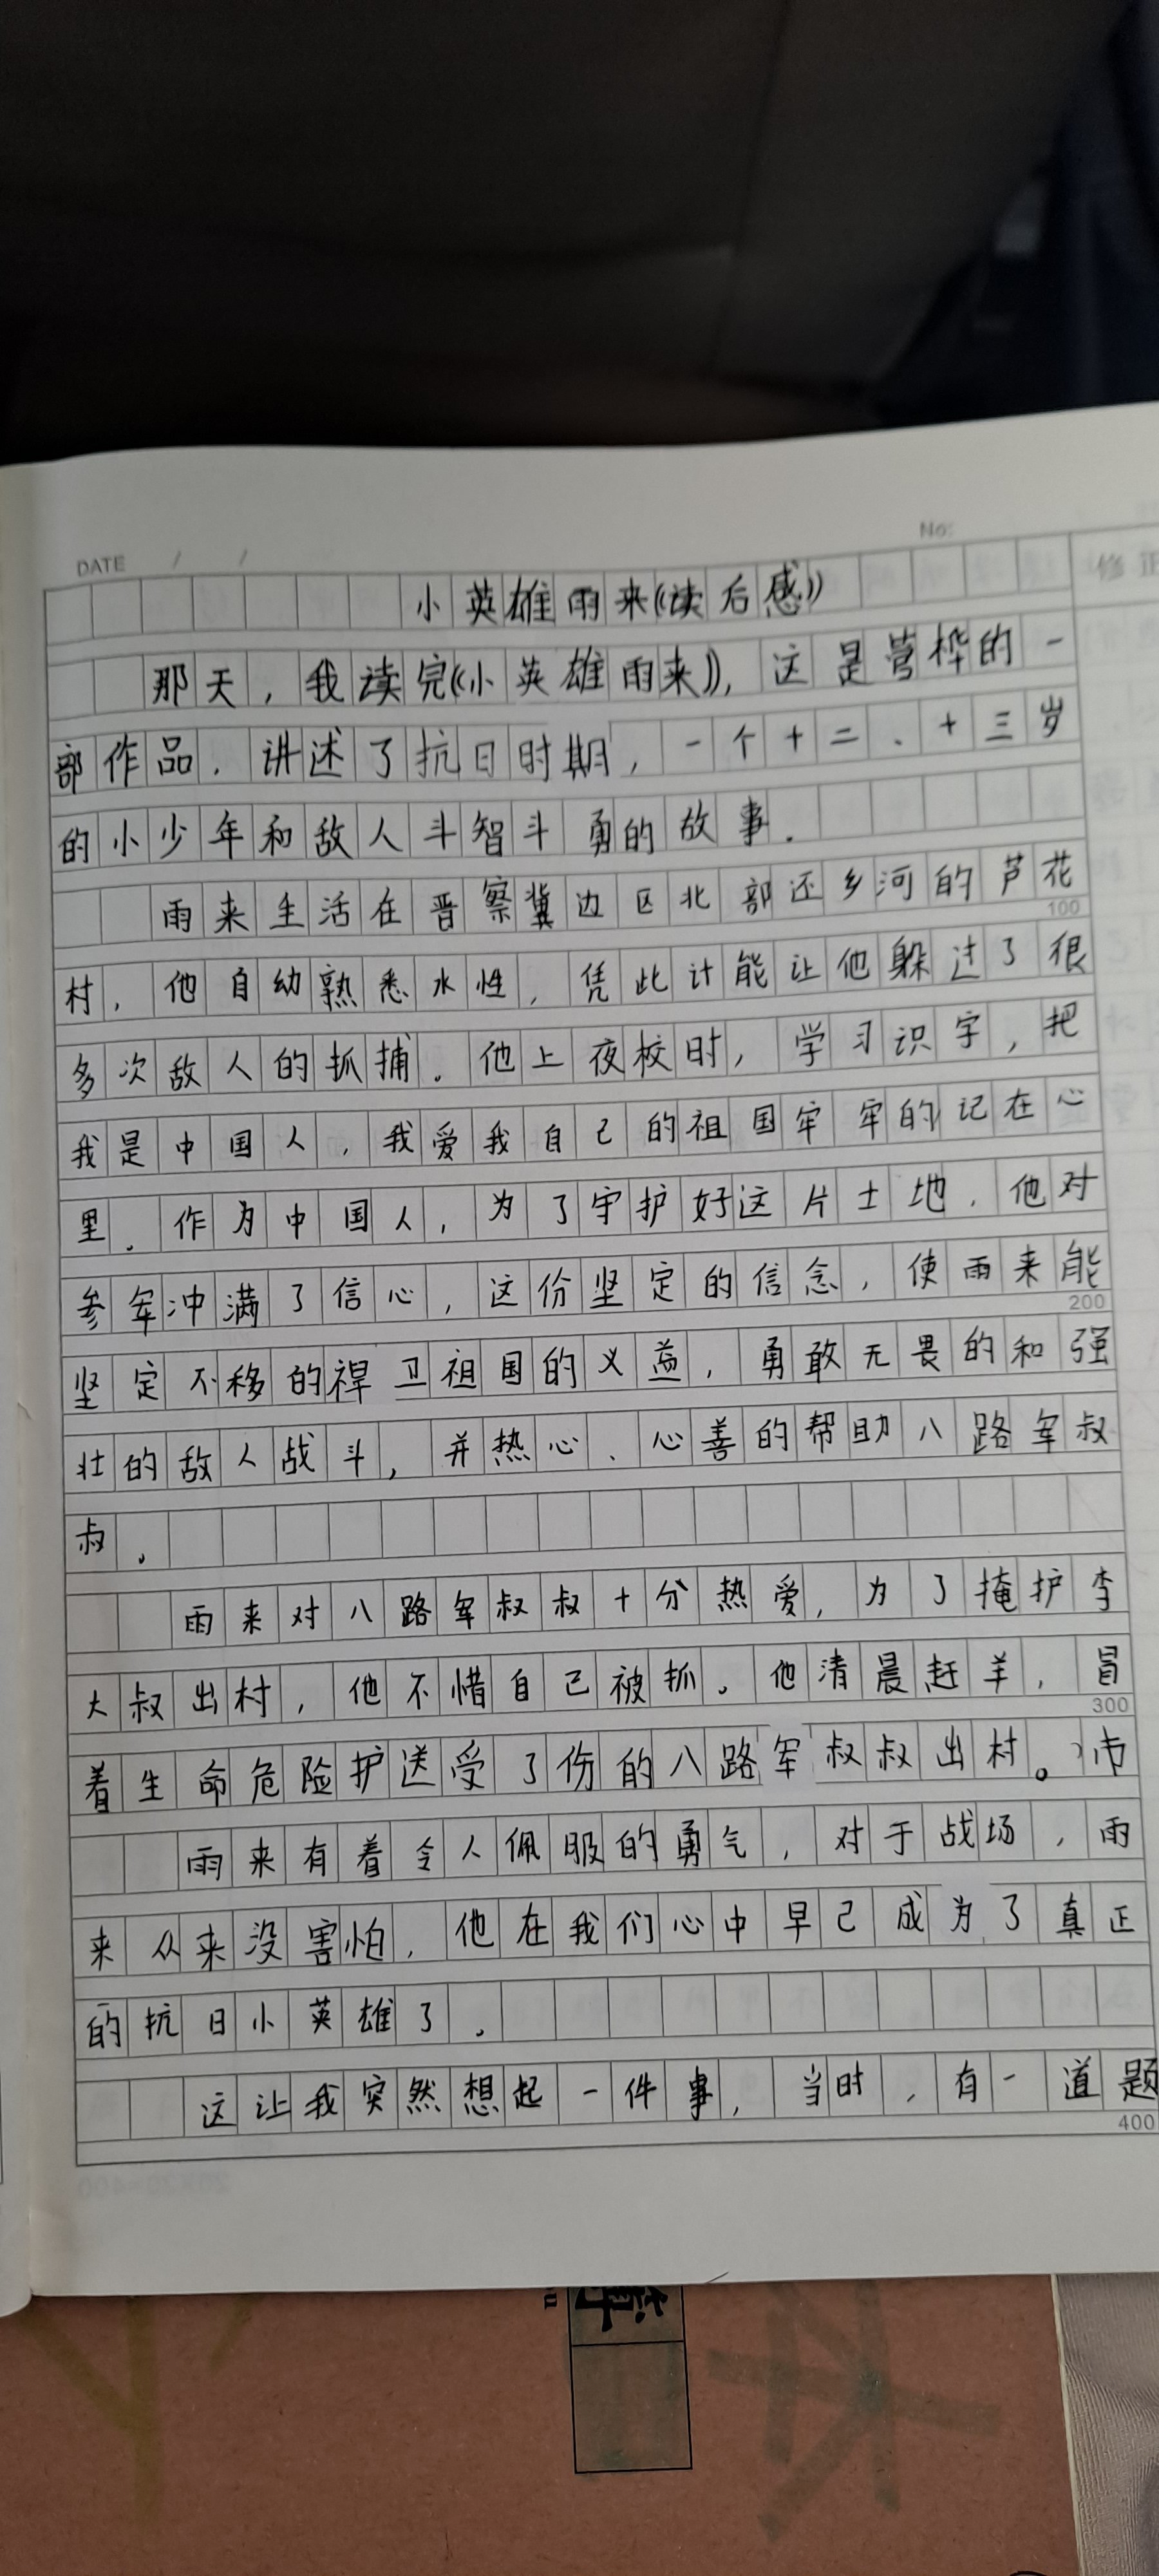 DATE / /
No:
修正
小英雄雨来《读后感》
那天，我读完《小英雄雨来》，这是管桦的一
部作品，讲述了抗日时期，一个十二、十三岁
的小少年和敌人斗智斗勇的故事.
雨来生活在晋察冀边区北部还乡河的芦花
100
村，他自幼熟悉水性，凭此计能让他躲过了很
多次敌人的抓捕。他上夜校时，学习识字，把
我是中国人，我爱我自己的祖国牢牢的记在心
里。作为中国人，为了守护好这片土地，他对
参军冲满了信心，这份坚定的信念，使雨来能
200
坚定不移的禅卫祖国的义益，勇敢无畏的和强
壮的敌人战斗，并热心、心善的帮助八路军叔
叔。
雨来对八路军叔叔十分热爱，为了掩护李
大叔出村，他不惜自己被抓。他清晨赶羊，冒
300
着生命危险护送受了伤的八路军叔叔出村。
雨来有着令人佩服的勇气，对于战场，雨
来从来没害怕，他在我们心中早已成为了真正
的抗日小英雄了。
这让我突然想起一件事，当时，有一道题
400
20X20=400